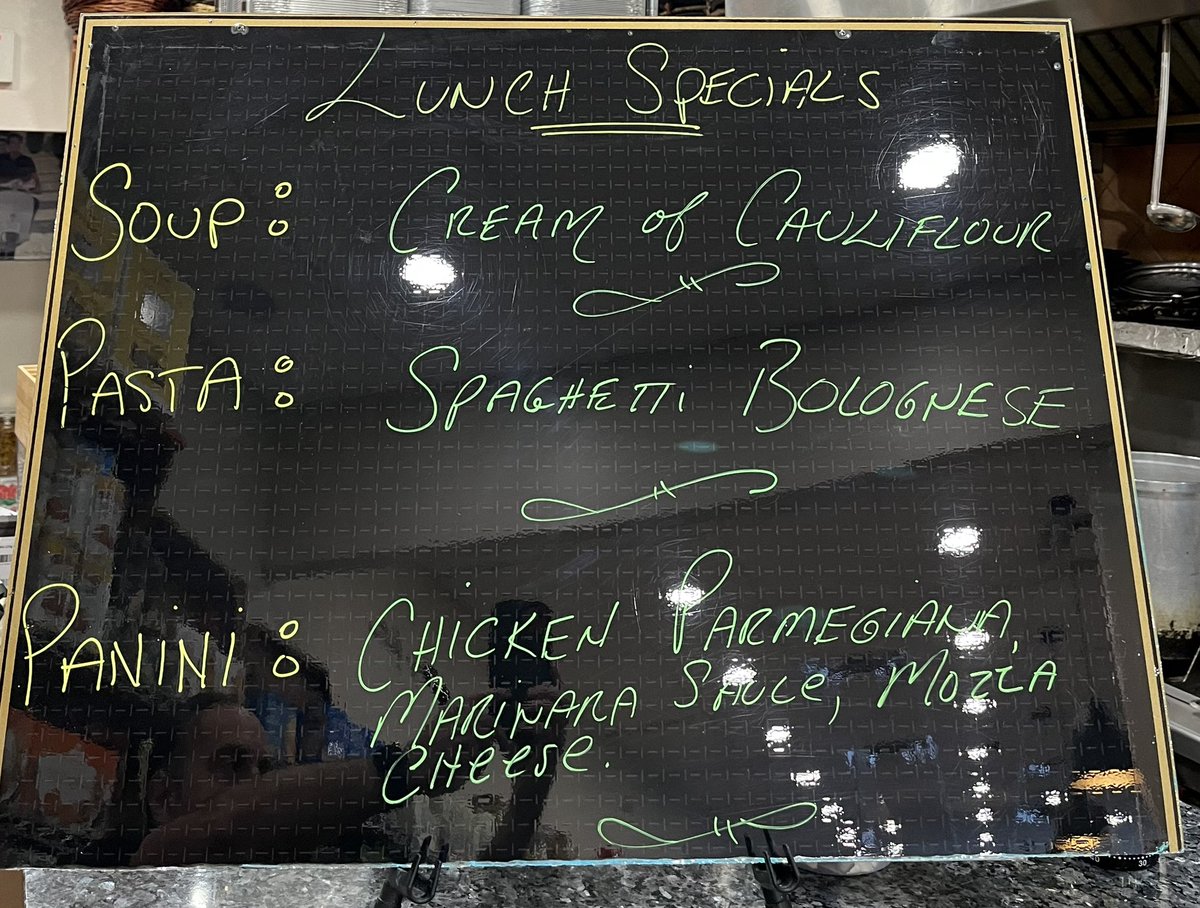 LUNCH SPECIALS
SOUP: CREAM of CAULIFLOUR
PASTA: SPAGHETTi BOLOGNESE
PANINI: CHICKEN PARMEGIANA,
MARINARA SAUCe, MOZZA
CHeese.